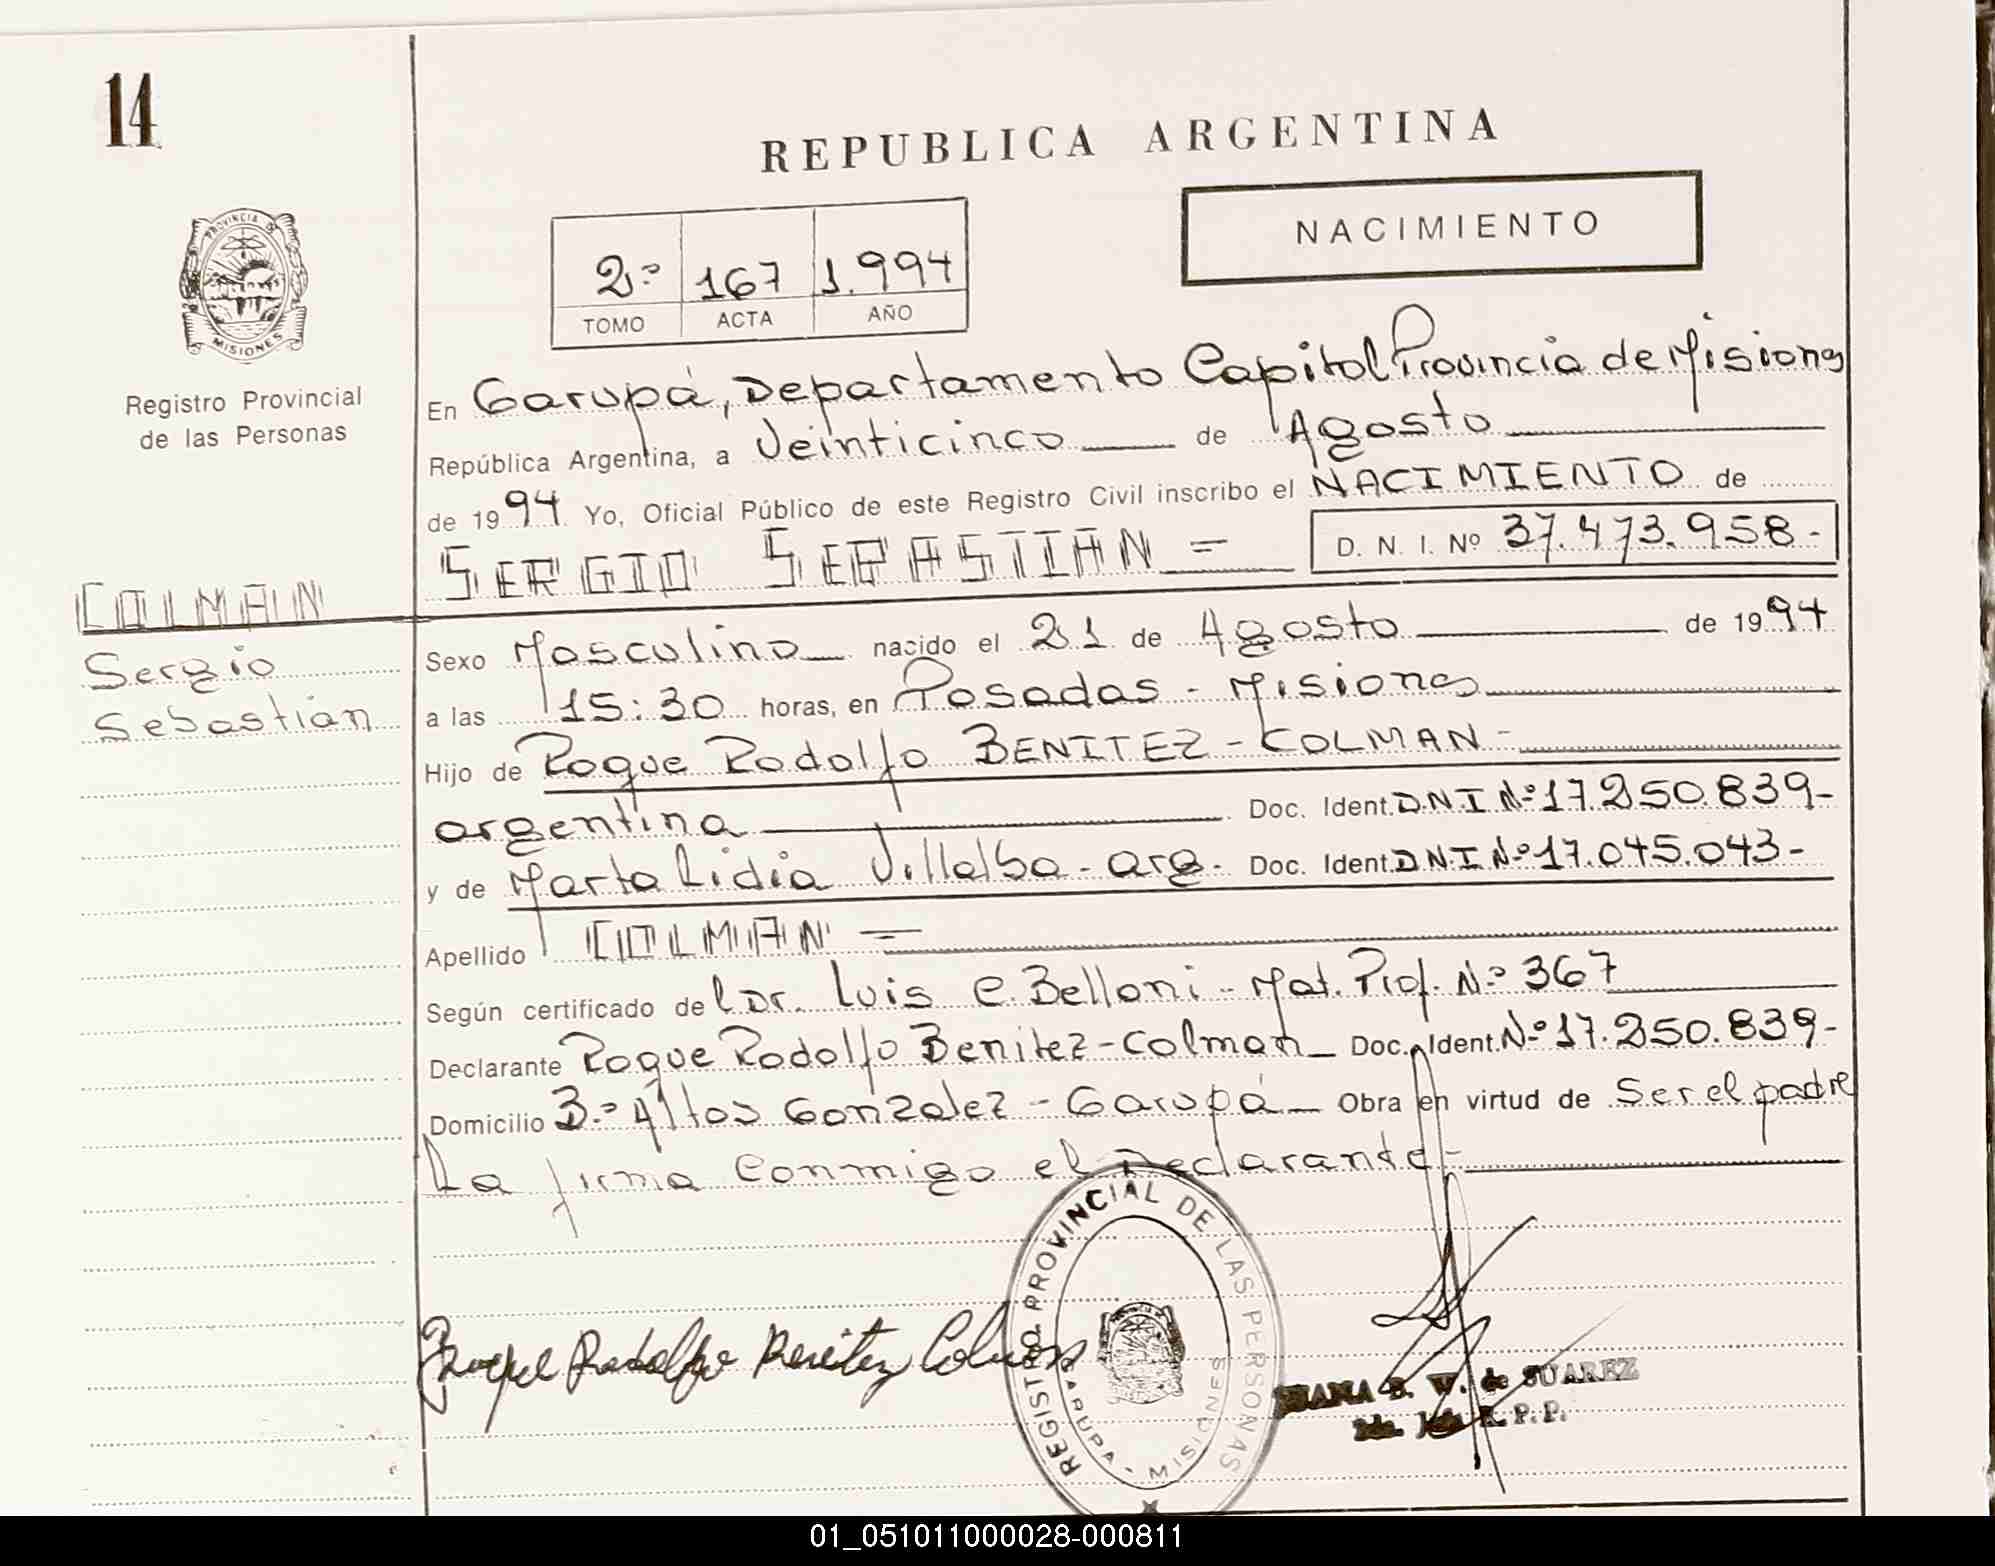 14
REPUBLICA ARGENTINA
NACIMIENTO
2º 167 1.994
TOMO ACTA AÑO
PROVINCIA DE
MISIONES
Registro Provincial
de las Personas
En Garupá, Departamento Capital Provincia de Misiones
República Argentina, a Veinticinco de Agosto
de 1994 Yo, Oficial Público de este Registro Civil inscribo el NACIMIENTO de
SERGIO SEBASTIAN = D. N. I. Nº 37.473.958-
COLMAN
Sergio
Sebastián
Sexo Masculino nacido el 21 de Agosto de 1994
a las 15:30 horas, en Posadas - Misiones
Hijo de Roque Rodolfo BENITEZ - COLMAN -
argentina Doc. Ident. D.N.I Nº 17.250.839-
y de Marta Lidia Villalba - arg. Doc. Ident. D.N.I Nº 17.045.043-
Apellido COLMAN =
Según certificado de l Dr. Luis C. Belloni - Mat. Prof. Nº 367
Declarante Roque Rodolfo Benitez - Colman Doc. Ident. Nº 17.250.839-
Domicilio Bº Altos Gonzalez - Garupá Obra en virtud de Ser el padre
La firma Conmigo el Declarante -
Roque Rodolfo Benitez Colman
REGISTRO PROVINCIAL DE LAS PERSONAS
GARUPA - MISIONES
B. W. de SUAREZ
R. P. P.
01_051011000028-000811